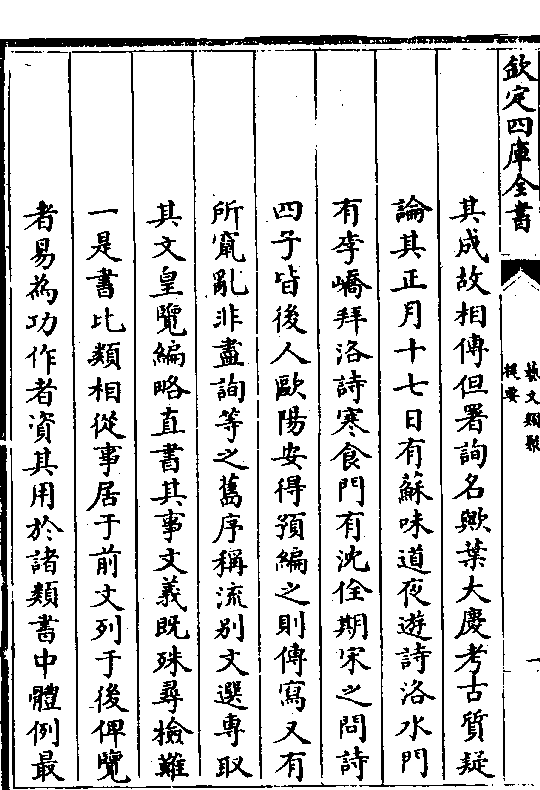 欽定四庫全書
藝文類聚
提要
一
其成故相傳但署詢名歟葉大慶考古質疑
論其正月十七日有蘇味道夜遊詩洛水門
有李嶠拜洛詩寒食門有沈佺期宋之問詩
四子皆後人歐陽安得預編之則傳寫又有
所竄亂非盡詢等之舊序稱流別文選專取
其文皇覽編略直書其事文義既殊尋檢難
一是書比類相從事居于前文列于後俾覽
者易為功作者資其用於諸類書中體例最